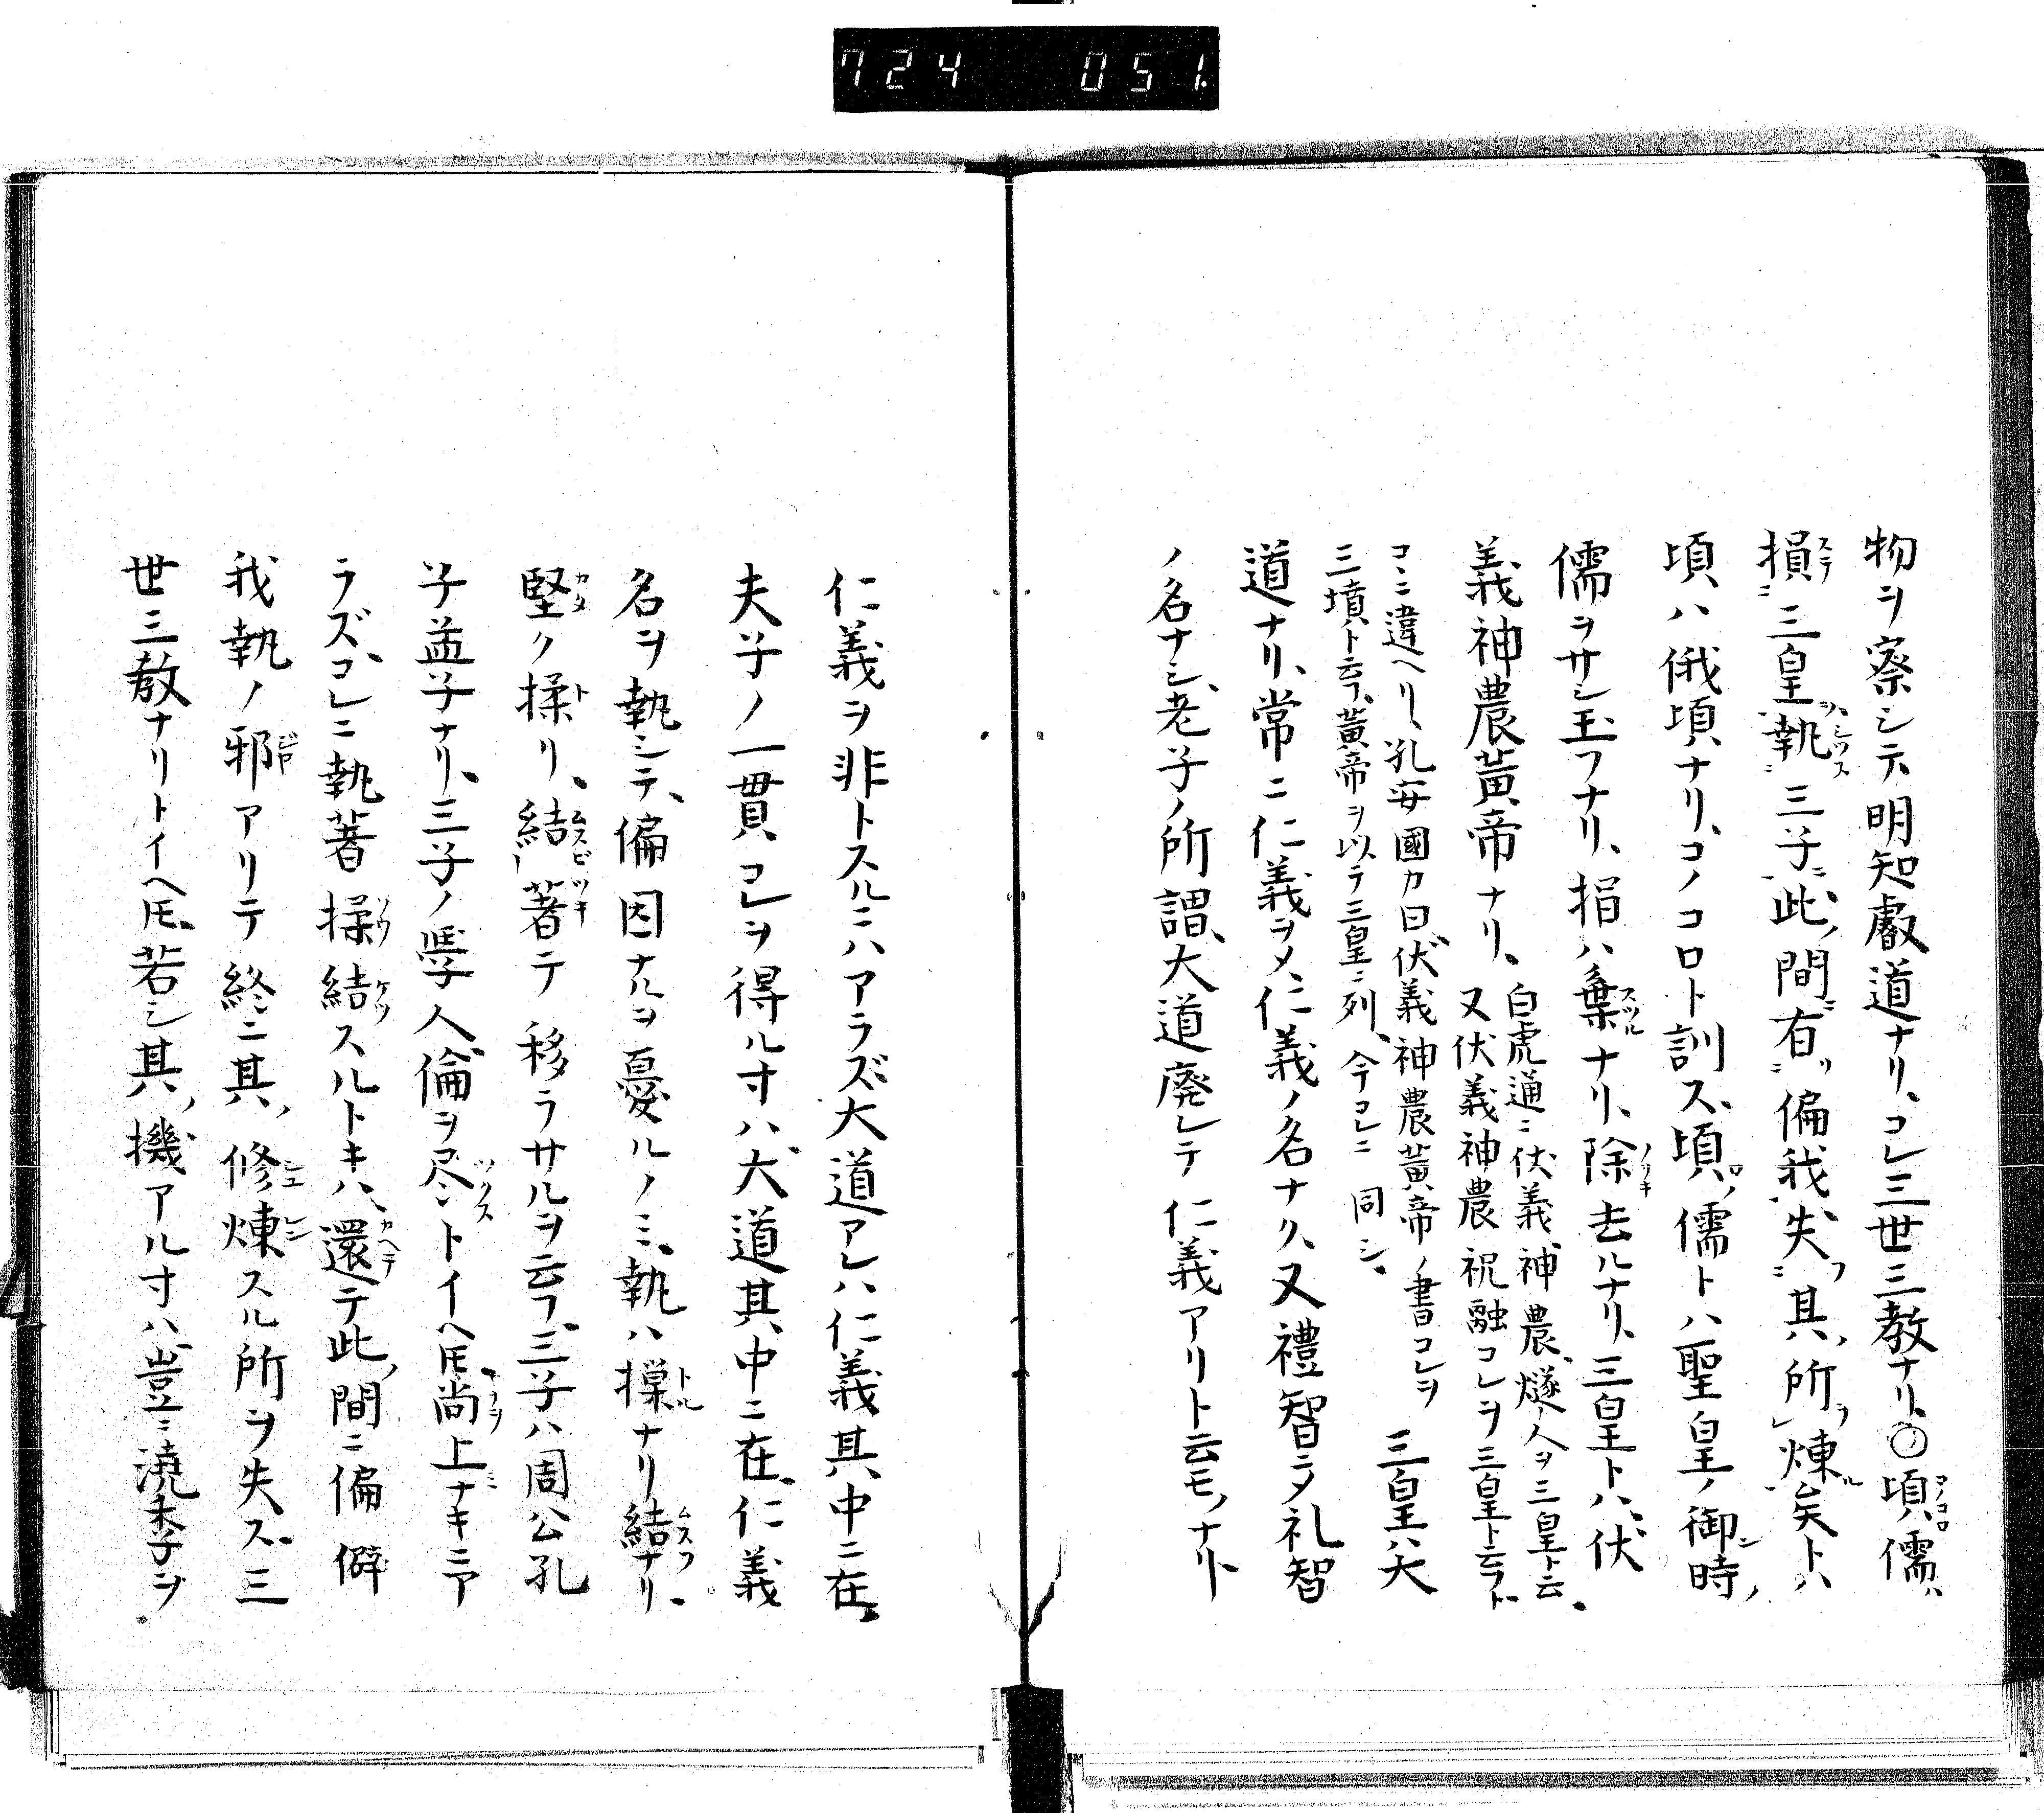 724 051
物ヲ察シテ明知叡道ナリ、コレ三世三教ナリ、〇頃儒、
損三皇執三子、此間有偏我、失其所煉矣トハ
頃ハ俄頃ナリ、コノコロト訓ス、頃儒トハ聖皇ノ御時ノ
儒ヲサシ玉フナリ、捐ハ棄ナリ、除去ルナリ、三皇トハ、伏
義神農黃帝ナリ、
白虎通ニ伏義、神農、燧人ヲ三皇ト云、
又伏義神農祝融コレヲ三皇ト云フト、
コヽニ違ヘリ、孔安國カ曰、伏義神農黃帝ノ書コレヲ
三墳ト云フ、黃帝ヲ以テ三皇ニ列、今コレニ同シ、
三皇ハ大
道ナリ、常ニ仁義ヲメ、仁義ノ名ナク、又禮智ニメ礼智
ノ名ナシ、老子ノ所謂、大道廃レテ仁義アリト云モノナリト
仁義ヲ非トスルニハアラズ大道アレハ仁義其中ニ在、
夫子ノ一貫コレヲ得ル寸ハ、大道其中ニ在、仁義
名ヲ執シテ、偏因ナルヲ憂ルノミ、執ハ操ナリ結ナリ、
堅ク操リ、結ヒ著テ移ラサルヲ云フ、三子ハ周公孔
子孟子ナリ、三子ノ學人倫ヲ尽ストイヘ𪜈、尚上ナキニア
ラズ、コレニ執著操結スルトキハ、還テ此間ニ偏僻
我執ノ邪アリテ終ニ其修煉スル所ヲ失ス、三
世三教ナリトイヘ𪜈、若シ其機アル寸ハ、豈ニ澆季ヲ